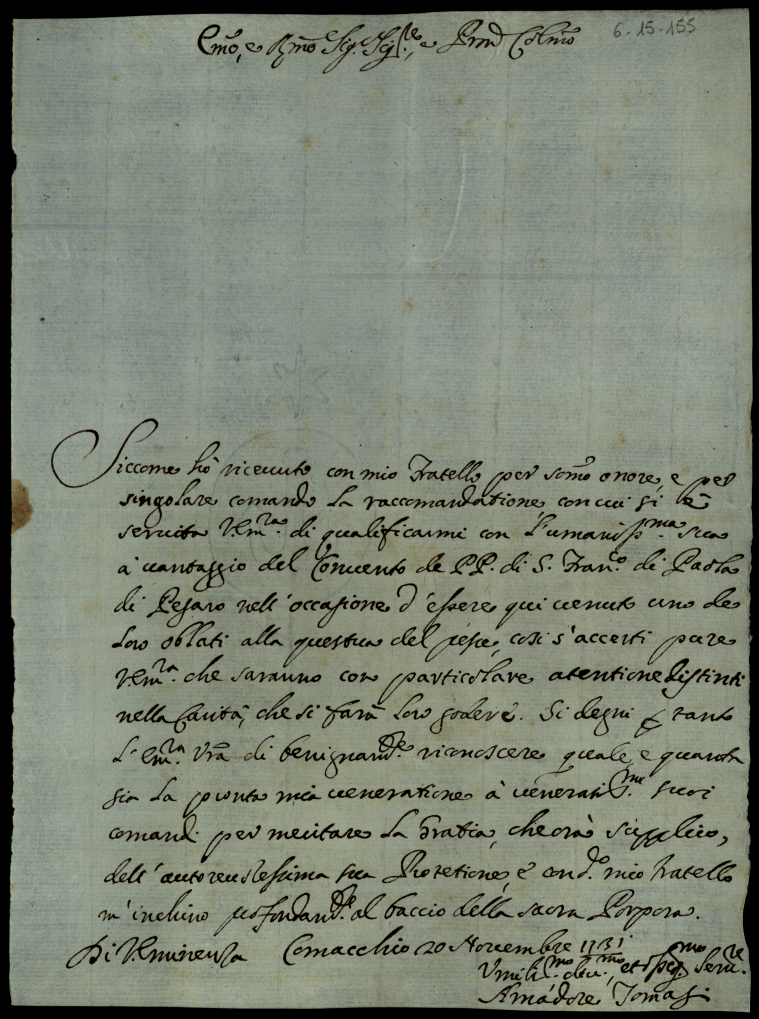 6-15-155
Emo, e Rmo Sig. Sig.re, e Pron Colmo
Siccome hò riceuuto con mio Fratello per somo onore, e per
singolare comando la raccomandatione con cui si è
seruita V. Em.ra di qualificarmi con l'umaniss.ma sua
à uantaggio del Conuento de PP. di S. Fran.co di Paola
di Pesaro nell'occasione d'essere qui uenuto uno de
loro oblati alla questua del pesce, così s'accerti pure
V. Em.ra che saranno con particolare atentione distinti
nella Carità, che si farà loro godere. Si degni p tanto
l'Em.ra Vra di benignam.te riconoscere quale, e quanta
sia la pronta mia ueneratione à ueneratiss.mi suoi
comandi per meritare la Gratia, che orà supplico,
dell'autoreuolessima sua Protetione, e con d.o mio Fratello
m'inchino profondam.te al baccio della sacra Porpora.
Di V. Eminenza Comacchio 20 Nouembre 1731
Vmilis.mo diu.mo, et osseq.mo Seru.re
Amadore Tomasi